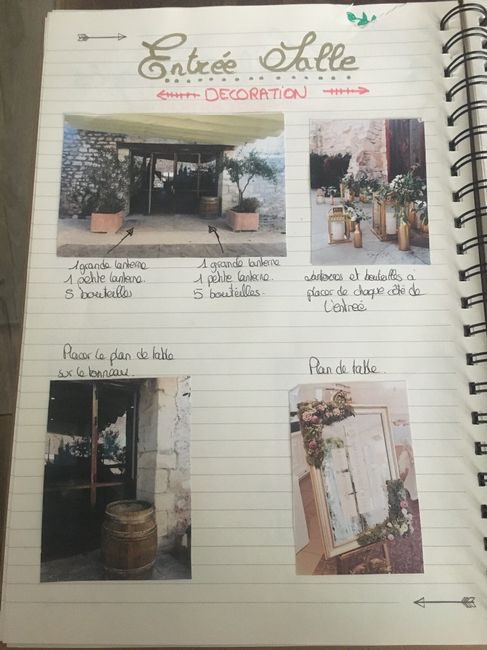 Entrée Salle
DECORATION
1 grande lanterne
1 petite lanterne.
5 bouteilles
1 grande lanterne
1 petite lanterne.
5 bouteilles.
Lanternes et bouteilles à
placer de chaque côté de
l'entrée
Placer le plan de table
sur le tonneau.
Plan de table.